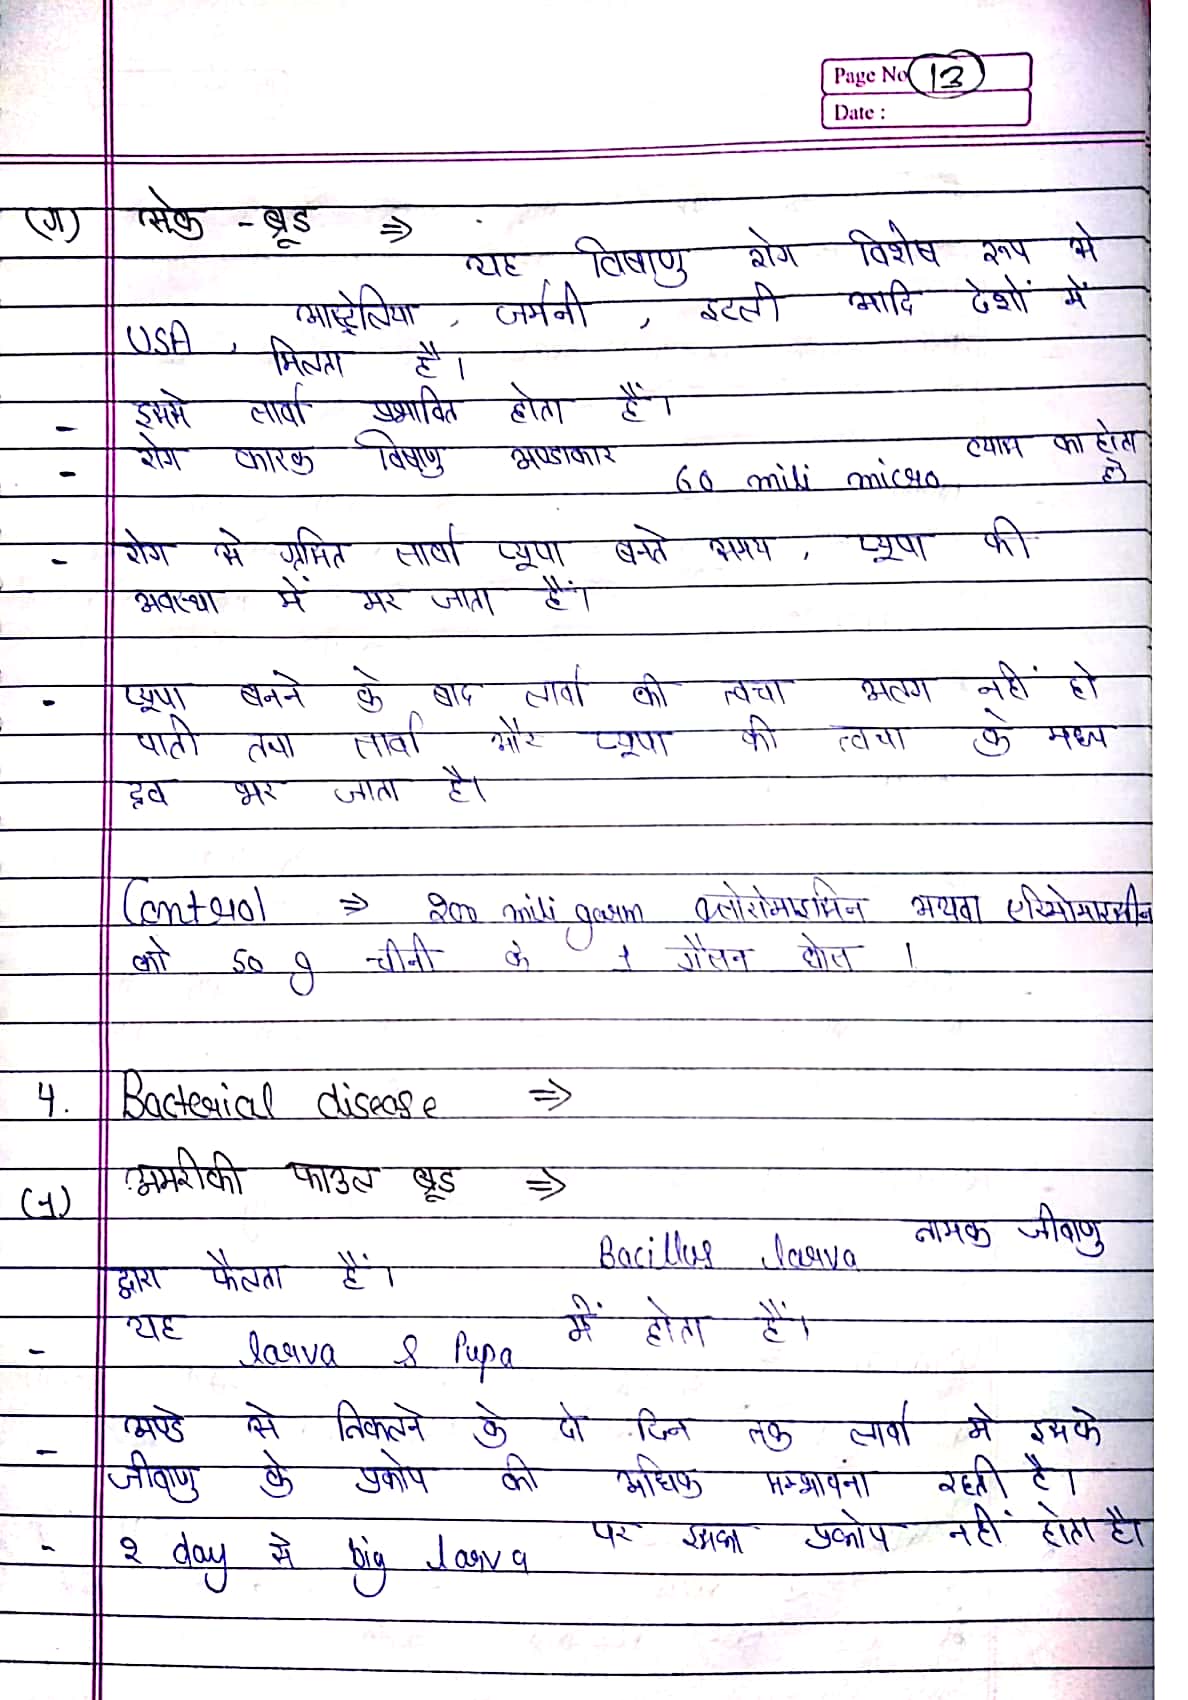 Page No 13
Date :
(ग) सेक - ब्रूड ⇒
यह विषाणु रोग विशेष रूप से
USA, आस्ट्रेलिया, जर्मनी, इटली आदि देशों में
मिलता है।
- इसमे लार्वा प्रभावित होता हैं।
- रोग कारक विषाणु अण्डाकार 60 mili micro व्यास का होता है
- रोग से ग्रसित लार्वा प्यूपा बनते समय, प्यूपा की
अवस्था में मर जाता हैं।
- प्यूपा बनने के बाद लार्वा की त्वचा अलग नहीं हो
पाती तथा लार्वा और प्यूपा की त्वचा के मध्य
द्रव भर जाता है।
Control ⇒ 200 mili garm क्लोरोमाइसिन अथवा
को 50 g चीनी के 1 गैलन घोल।
4. Bacterial disease ⇒
(1) अमरीकी फाउल ब्रूड ⇒
Bacillus larva नामक जीवाणु
द्वारा फैलता हैं।
- यह larva & Pupa में होता हैं।
- अण्डे से निकलने के दो दिन तक लार्वा मे इसके
जीवाणु के प्रकोप की अधिक सम्भावना रहती है।
- 2 day से big larva पर इसका प्रकोप नहीं होता है।